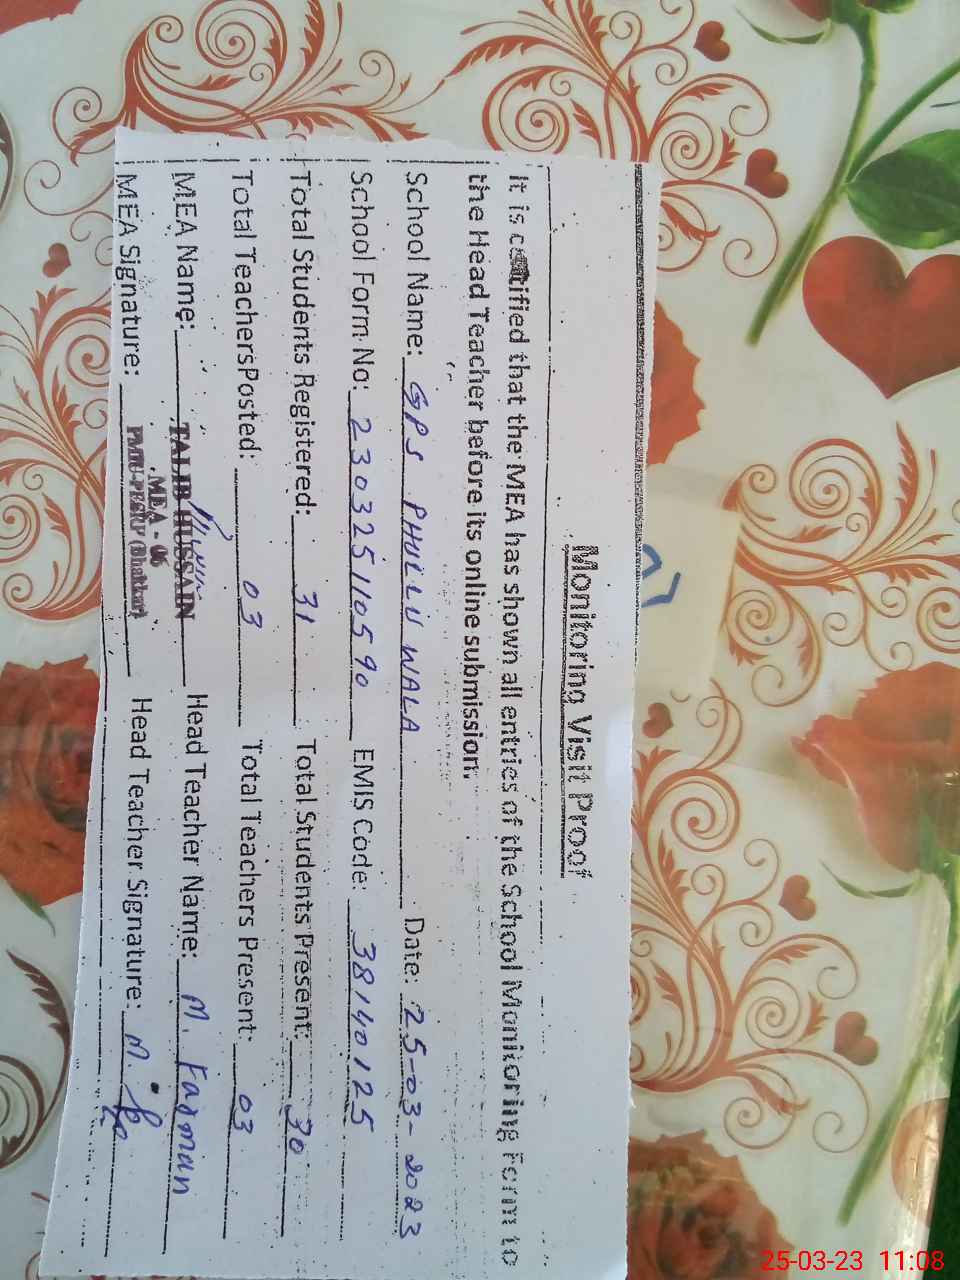 Monitoring Visit Proof
It is certified that the MEA has shown all entries of the School Monitoring Form to
the Head Teacher before its online submission.
School Name: GPS PHULLU WALA Date: 25-03-2023
School Form No: 23032511 0590 EMIS Code: 38140125
Total Students Registered: 31 Total Students Present: 30
Total Teachers Posted: 03 Total Teachers Present: 03
MEA Name: TALIB HUSSAIN Head Teacher Name: M. Farman
MEA - 06
MEA Signature: PMIU-PESRP (Bhakkar) Head Teacher Signature: M.
25-03-23 11:08